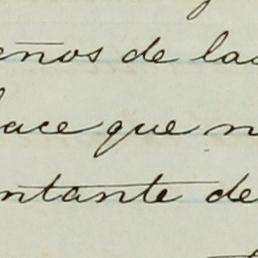 eños de las
hace que n
ntante de